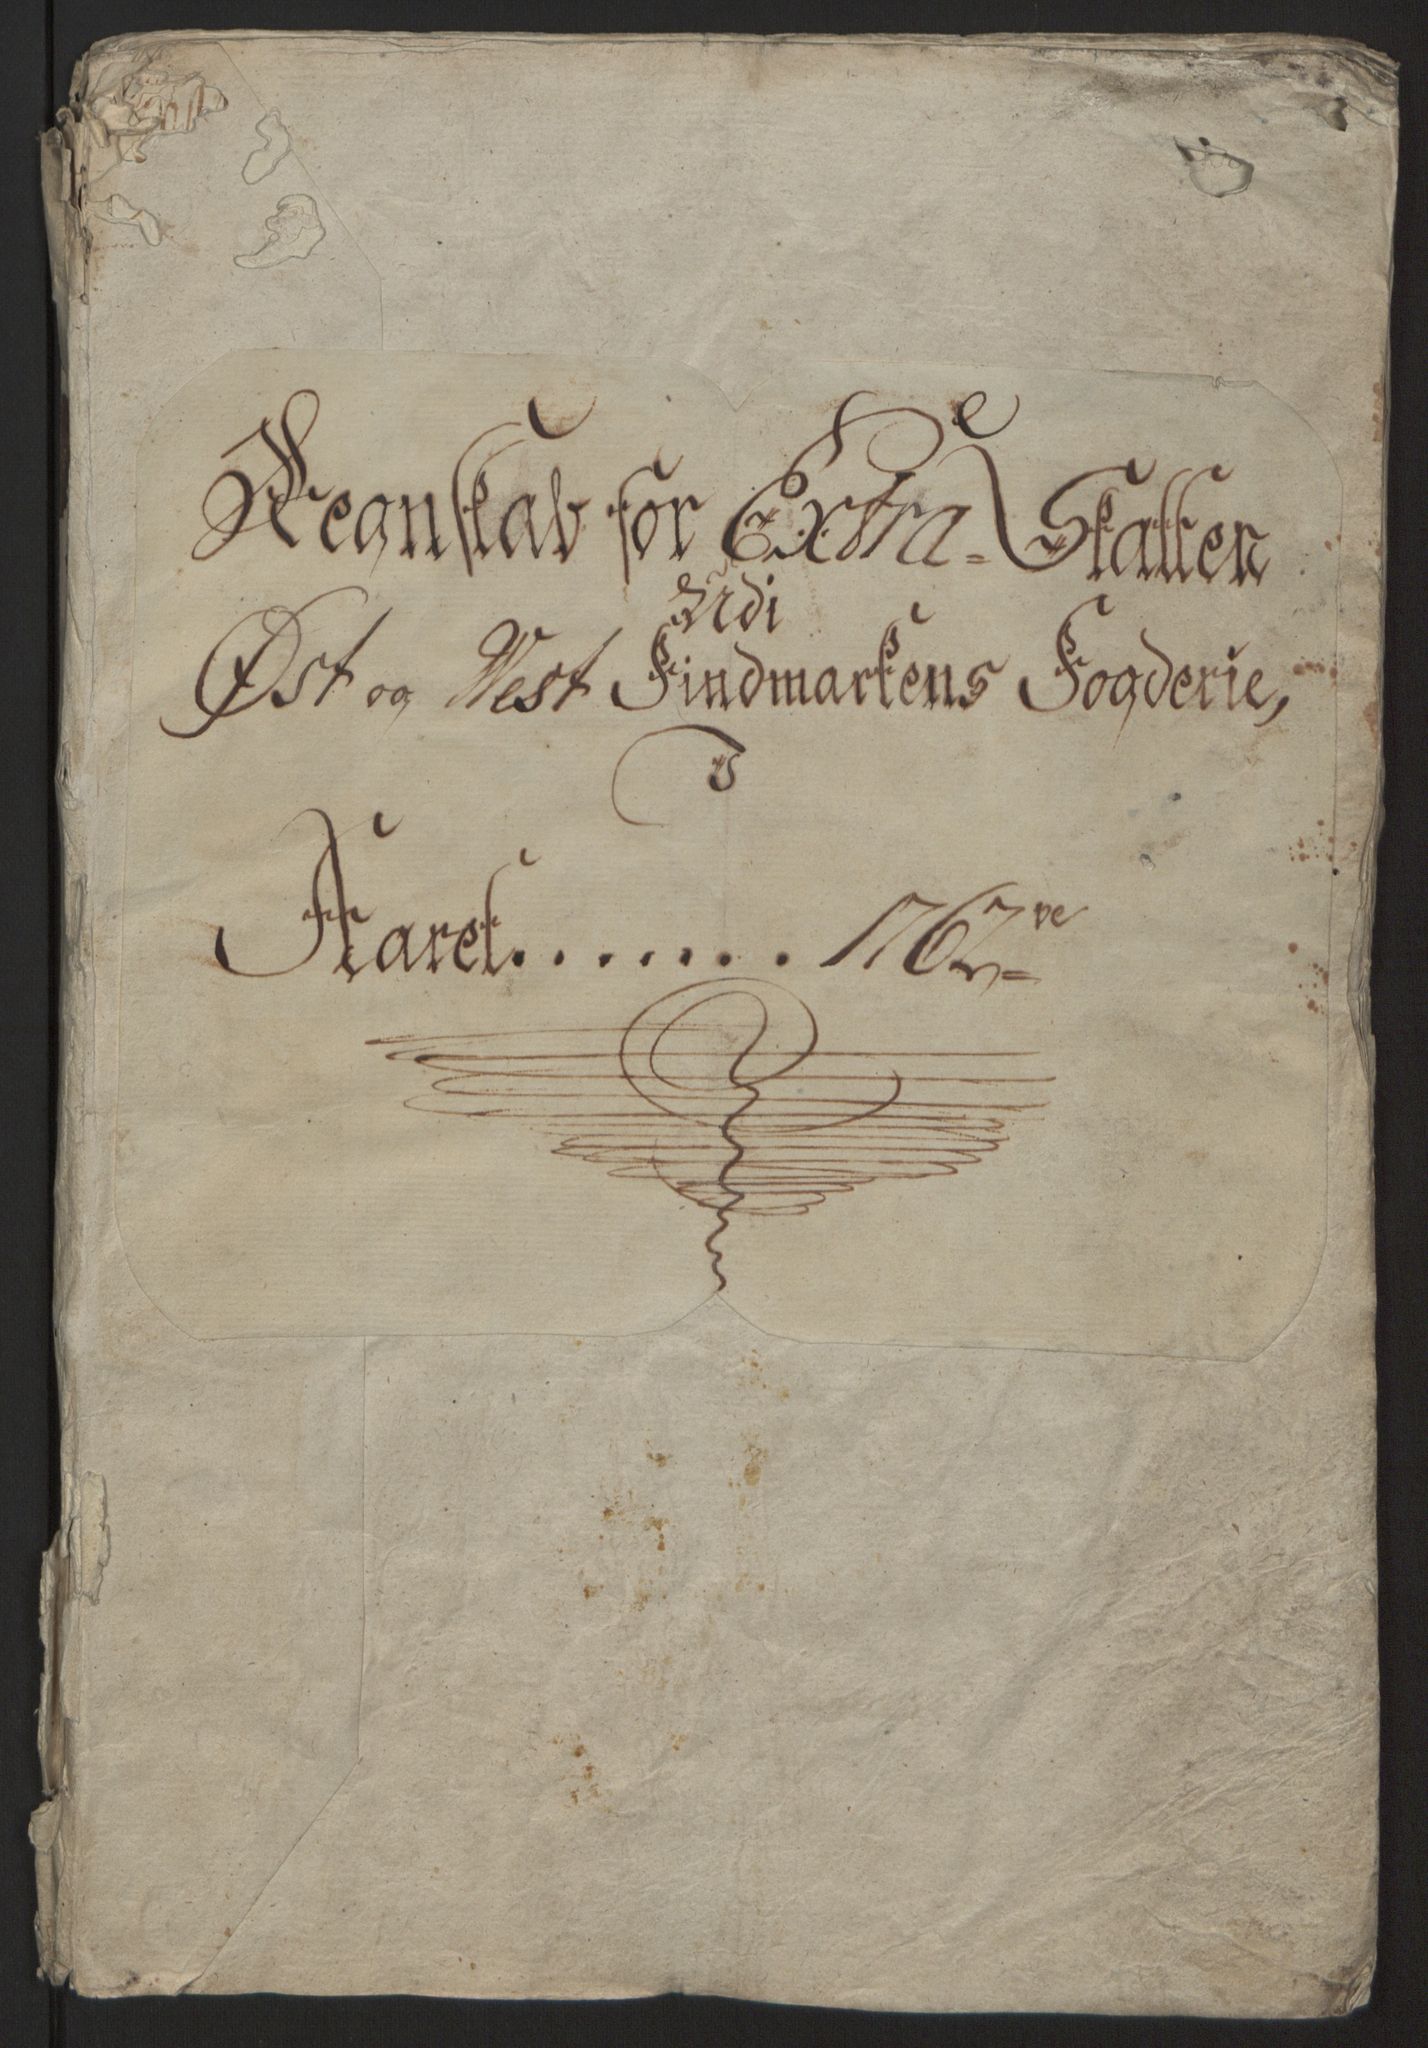 Regnskab for Extra-Skatten
Udi
Øst og West Findmarkens Fogderie,
Aaret........ 1762